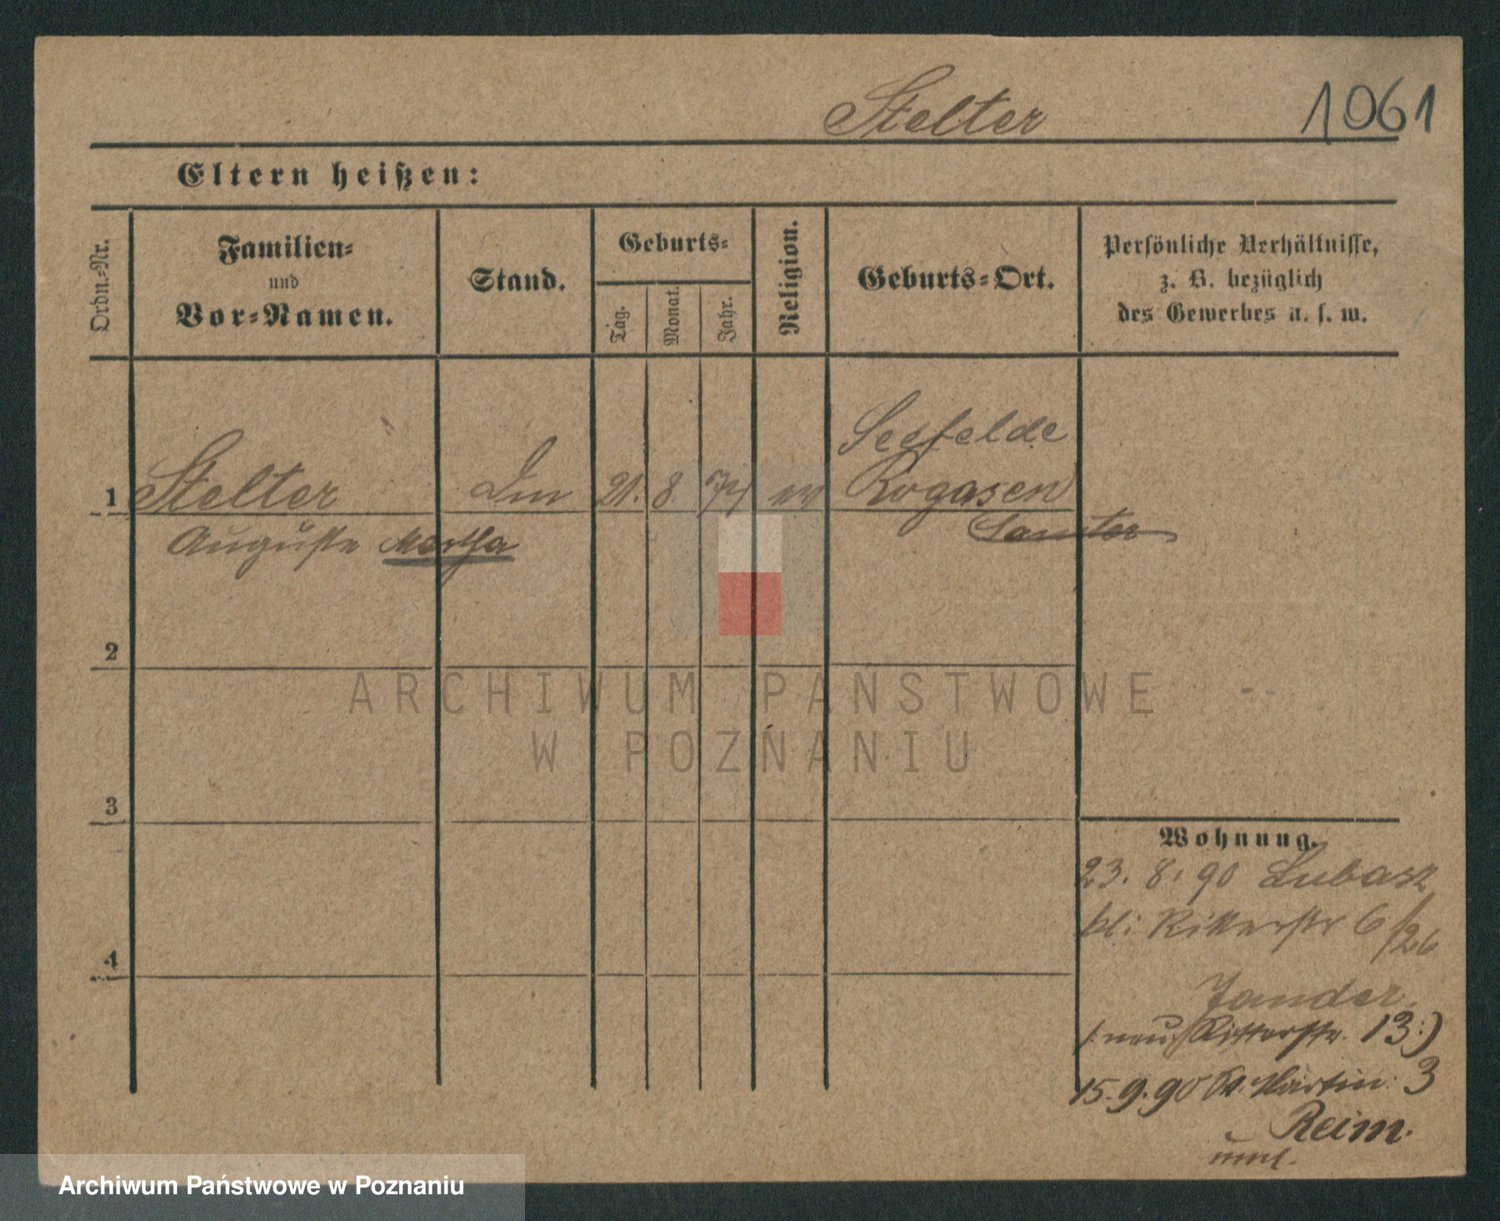 Stelter 1061
Eltern heißen:
Ordn.-Nr.
Familien-
und
Vor-Namen.
Stand.
Geburts-
Tag.
Monat.
Jahr.
Religion.
Geburts-Ort.
Persönliche Verhältnisse,
z. B. bezüglich
des Gewerbes u. s. w.
Seefelde
1 Stelter 21. 8 74 Rogasen
Auguste Martha Samter
2
ARCHIWUM PAŃSTWOWE
W POZNANIU
3
Wohnung.
23. 8. 90 Lubasz
bl: Ritterstr 6/26
4
Zander
(: neu Ritterstr. 13 :)
15. 9. 90 St. Martin 3
Reim.
Archiwum Państwowe w Poznaniu